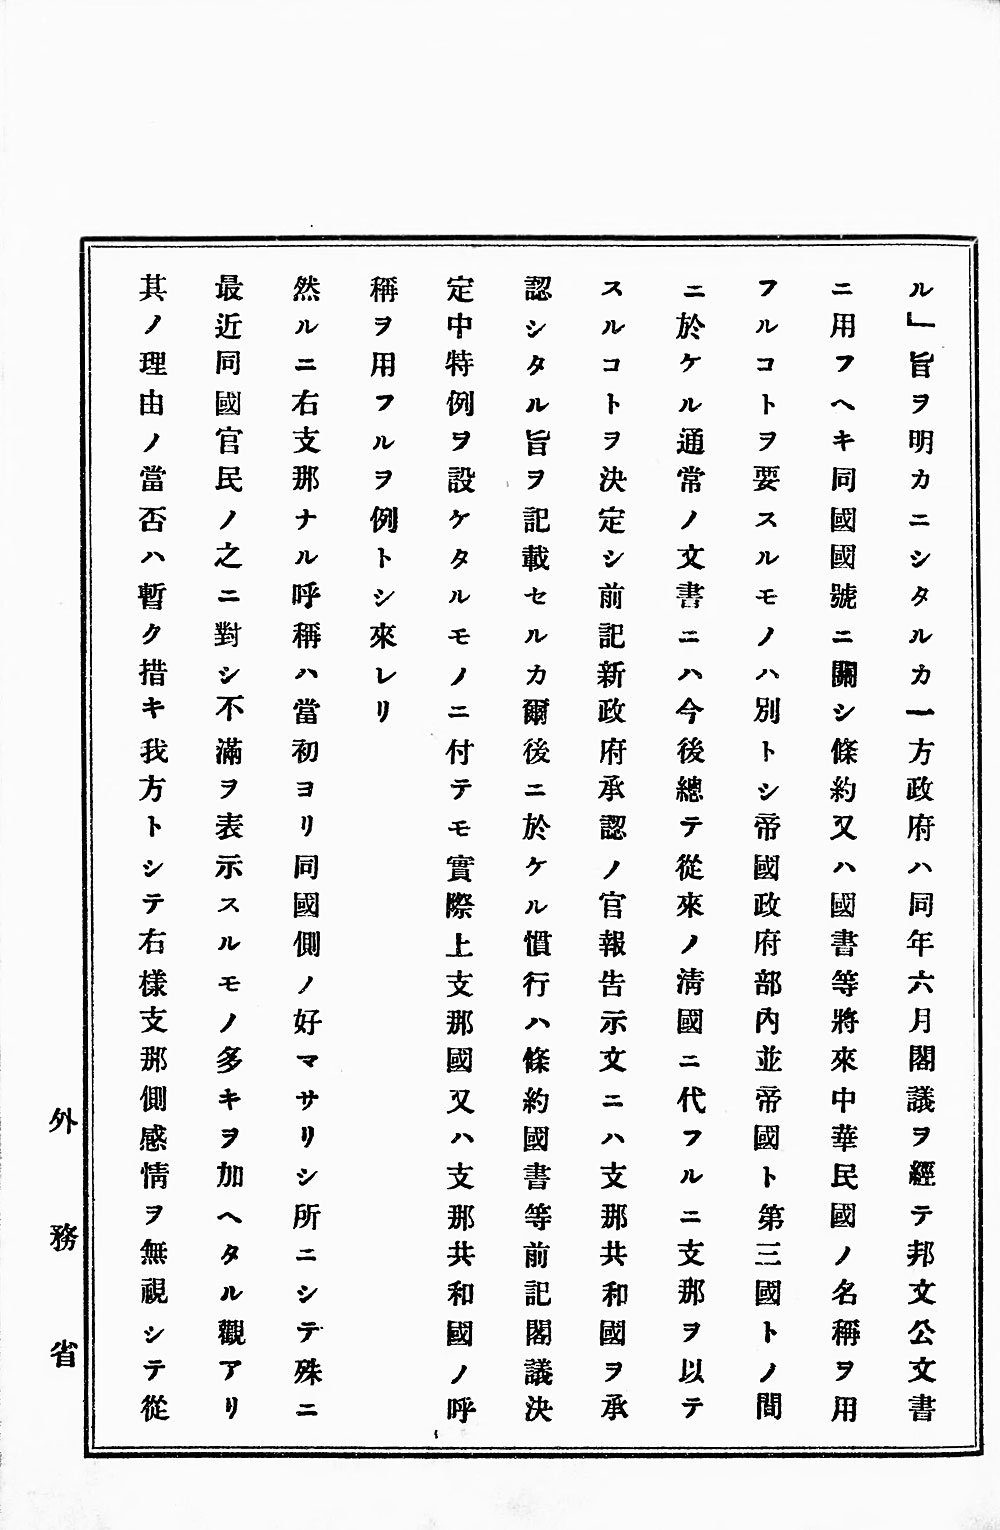 ル」旨ヲ明カニシタルカ一方政府ハ同年六月閣議ヲ經テ邦文公文書
ニ用フヘキ同國國號ニ關シ條約又ハ國書等將來中華民國ノ名稱ヲ用
フルコトヲ要スルモノハ別トシ帝國政府部內並帝國ト第三國トノ間
ニ於ケル通常ノ文書ニハ今後總テ從來ノ淸國ニ代フルニ支那ヲ以テ
スルコトヲ決定シ前記新政府承認ノ官報告示文ニハ支那共和國ヲ承
認シタル旨ヲ記載セルカ爾後ニ於ケル慣行ハ條約國書等前記閣議決
定中特例ヲ設ケタルモノニ付テモ實際上支那國又ハ支那共和國ノ呼
稱ヲ用フルヲ例トシ來レリ
然ルニ右支那ナル呼稱ハ當初ヨリ同國側ノ好マサリシ所ニシテ殊ニ
最近同國官民ノ之ニ對シ不滿ヲ表示スルモノ多キヲ加ヘタル觀アリ
其ノ理由ノ當否ハ暫ク措キ我方トシテ右樣支那側感情ヲ無視シテ從
外務省